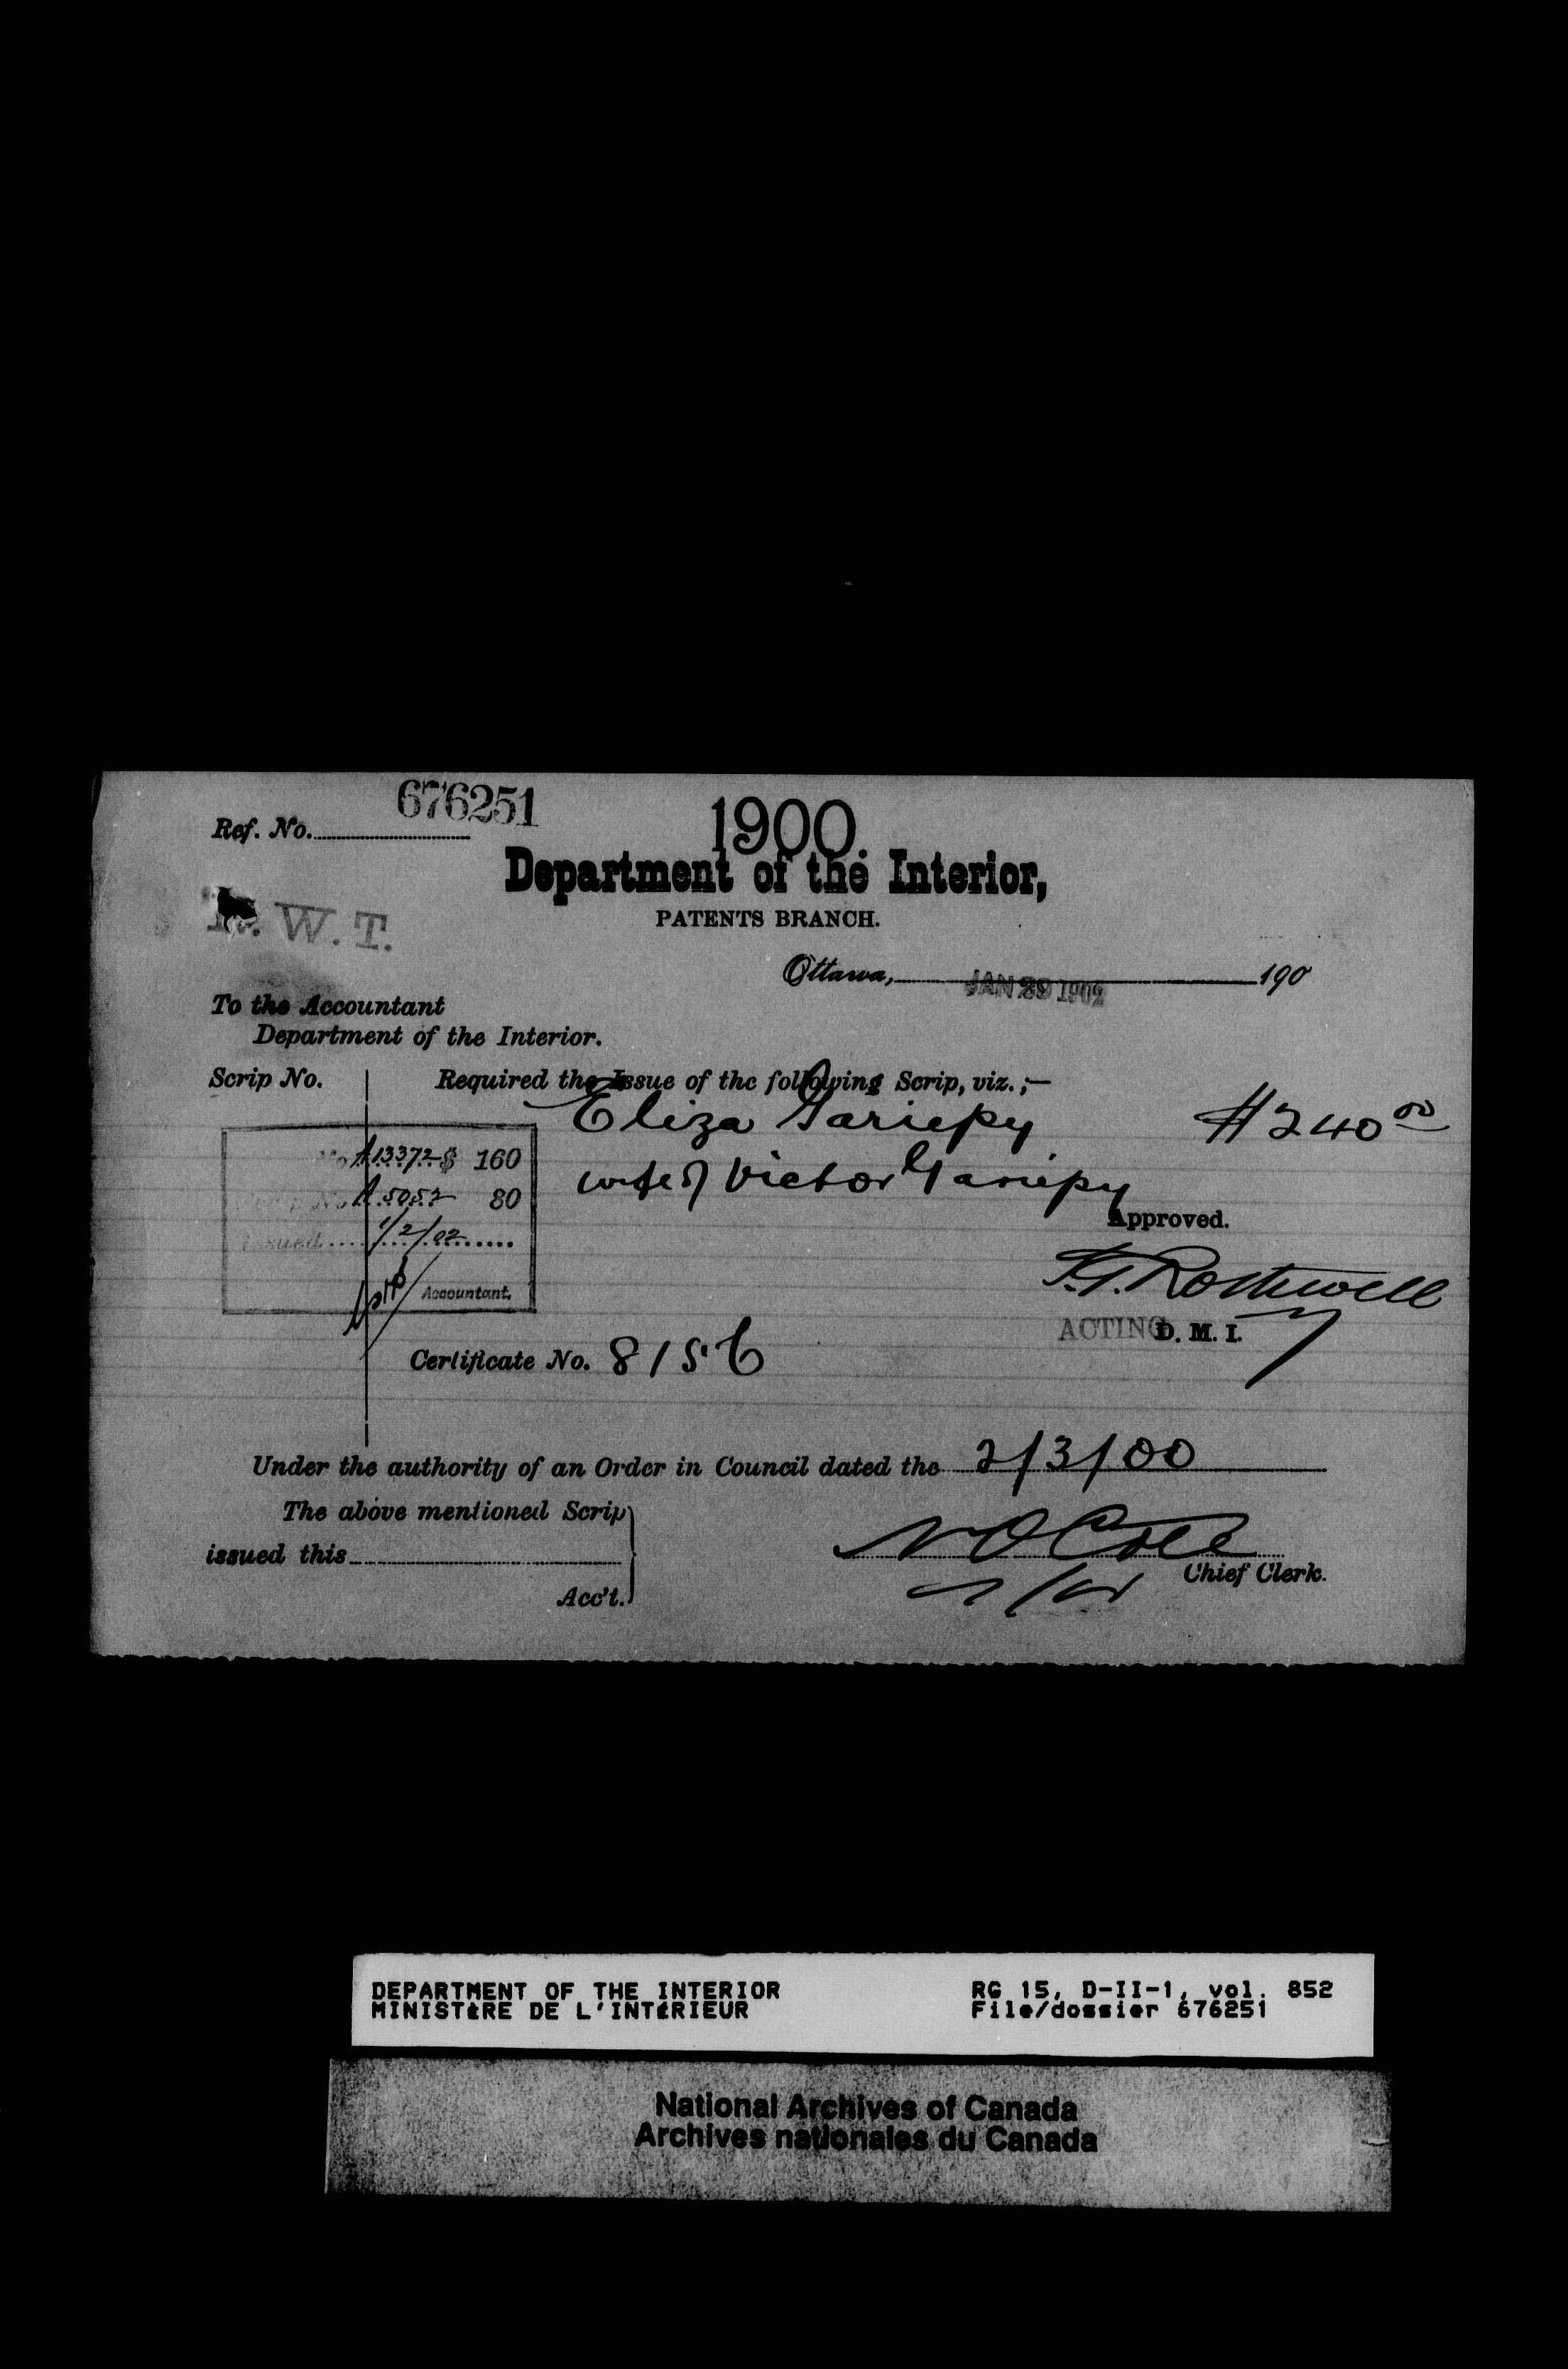 676251
Ref. No.
1900.
Department of the Interior,
PATENTS BRANCH.
N. W. T.
Ottawa, JAN 29 1902 190
To the Accountant
Department of the Interior.
Scrip No. Required the Issue of the following Scrip, viz.;—
Eliza Gariepy $240.00
wife of Victor Gariepy
No A13372 $ 160
No A 5052 80
Issued 1/2/02
Accountant.
Approved.
Rothwell
ACTING D. M. I.
Certificate No. 8156
Under the authority of an Order in Council dated the 2/3/00
The above mentioned Scrip
issued this
Acc't.
N O Coté
Chief Clerk.
DEPARTMENT OF THE INTERIOR RG 15, D-II-1, vol. 852
MINISTÈRE DE L'INTÉRIEUR File/dossier 676251
National Archives of Canada
Archives nationales du Canada